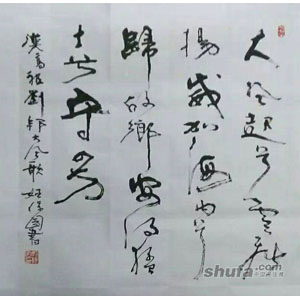 大风起兮云飞
扬威加海内兮
歸故鄉安得猛
士兮守四方
漢高祖劉邦大风歌
shufa.com